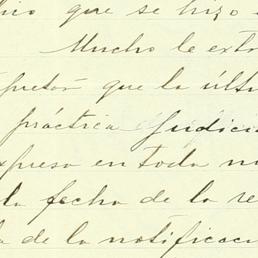 que se hizo
Mucho le extr
que la últ
práctica Judici
expresa en toda
la fecha de la re
de la notificac